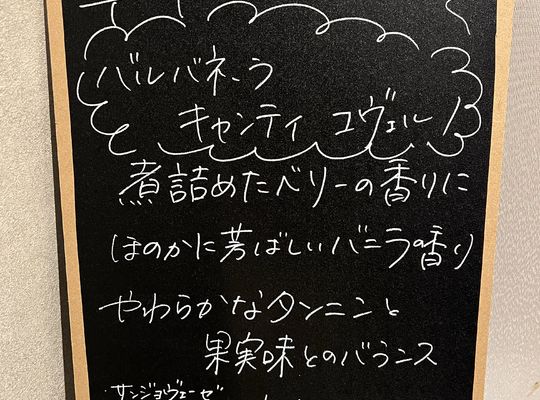 バルバネーラ
キャンティ ユヴェルノ
煮詰めたベリーの香りに
ほのかに芳ばしいバニラの香り
やわらかなタンニンと
果実味とのバランス
サンジョヴェーゼ